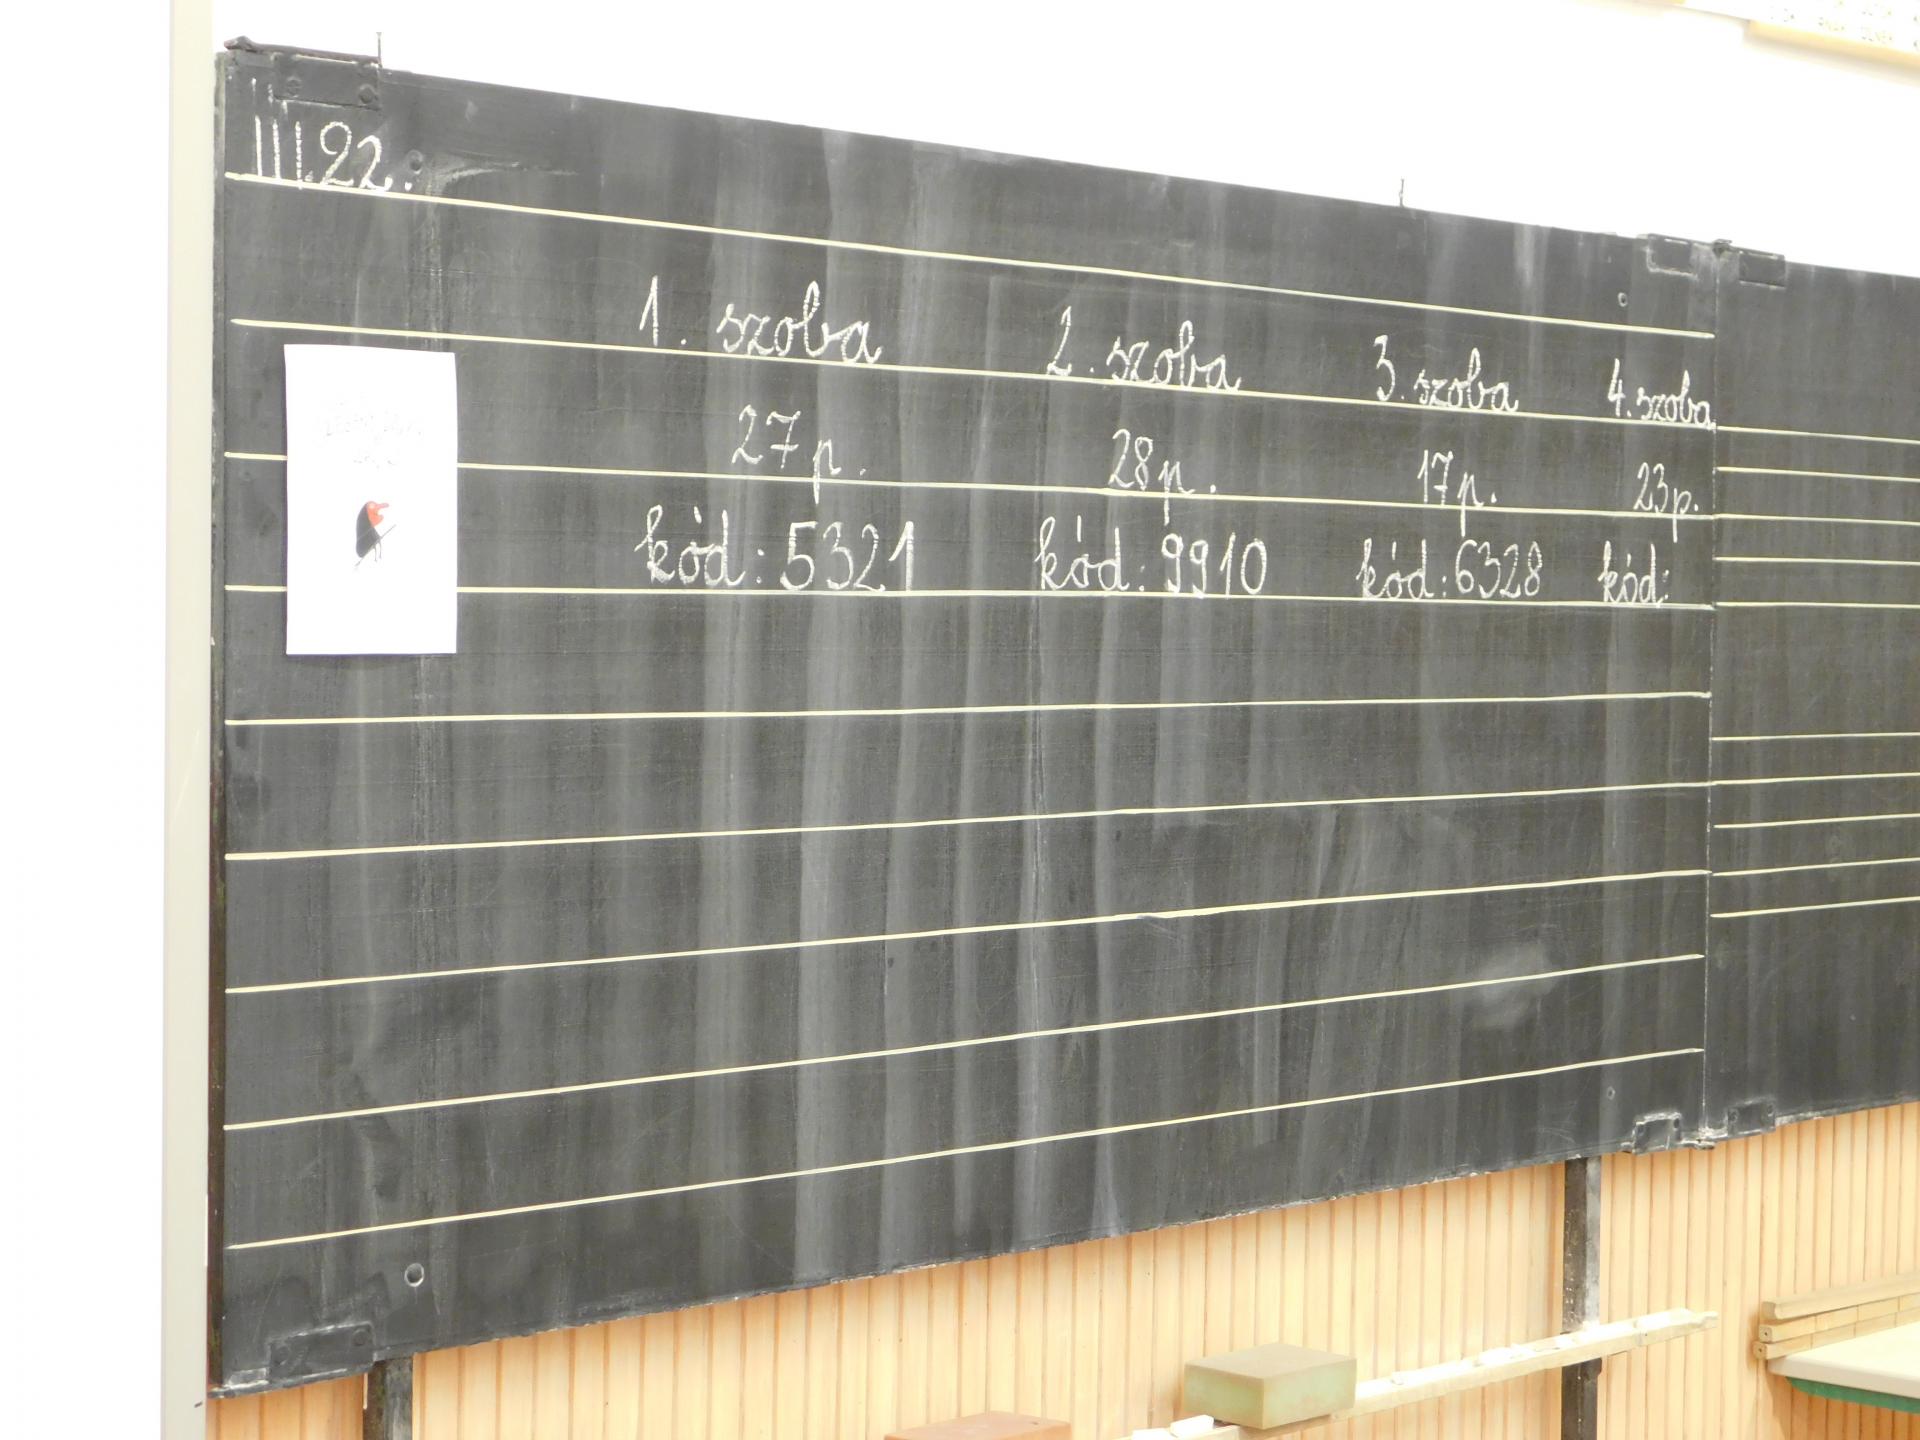 III.22.
1. szoba 2. szoba 3. szoba 4. szoba
27 p. 28 p. 17 p. 23 p.
kód: 5321 kód: 9910 kód: 6328 kód: